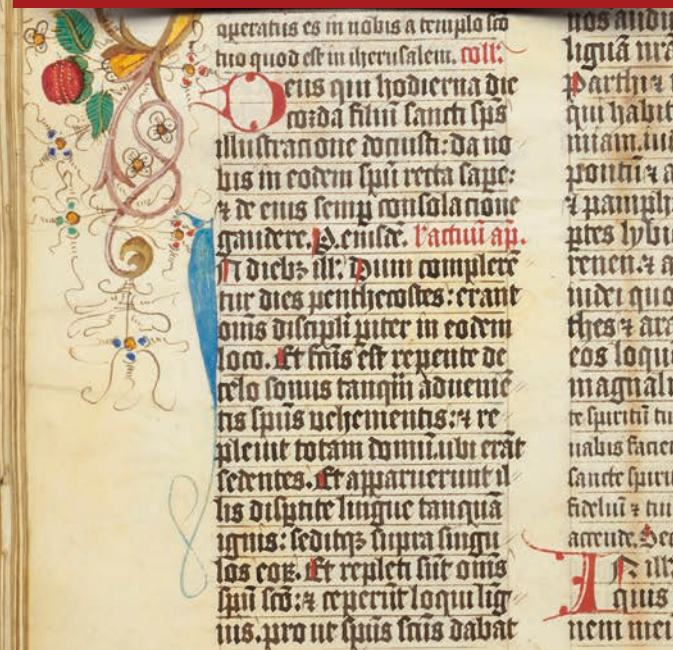 operatus es in nobis a templo sc̄o
tuo quod est in iherusalem. coll:
Deus qui hodierna die
corda filiū sancti sp̄s
illustracione docuisti: da no
bis in eodem spū recta sape:
⁊ de eius semp̱ consolacione
gaudere. P. eiusdē. l'actuū ap̄.
In dieb⁊ ill': Dum complerē
tur dies penthecostes: erant
om̄s discipl̄i p̱iter in eodem
loco. Et fc̄us est repente de
celo sonus tanq̄m adueniē
tis sp̄us uehementis: ⁊ re
pleuit totam domū. ubi erāt
sedentes. Et apparuerunt il
lis disp̱tite lingue tanquā
ignis: seditq⁊ supra singu
los eoꝝ. Et repleti sūt om̄s
spū sc̄o: ⁊ ceperūt loqui lig
uis. pro ut sp̄us sc̄us dabat
nos audiu
liguā nr̄a
Parthi ⁊
qui habit
pontū ⁊ a
⁊ pamph
ptes lybie
renen. ⁊ a
iudei quo
thes ⁊ ara
eos loqu
magnali
te spiritū tu
nabis facien
sancte spiri
fideliū ⁊ tui
accende. Sec
In ill'
quis
nem mei